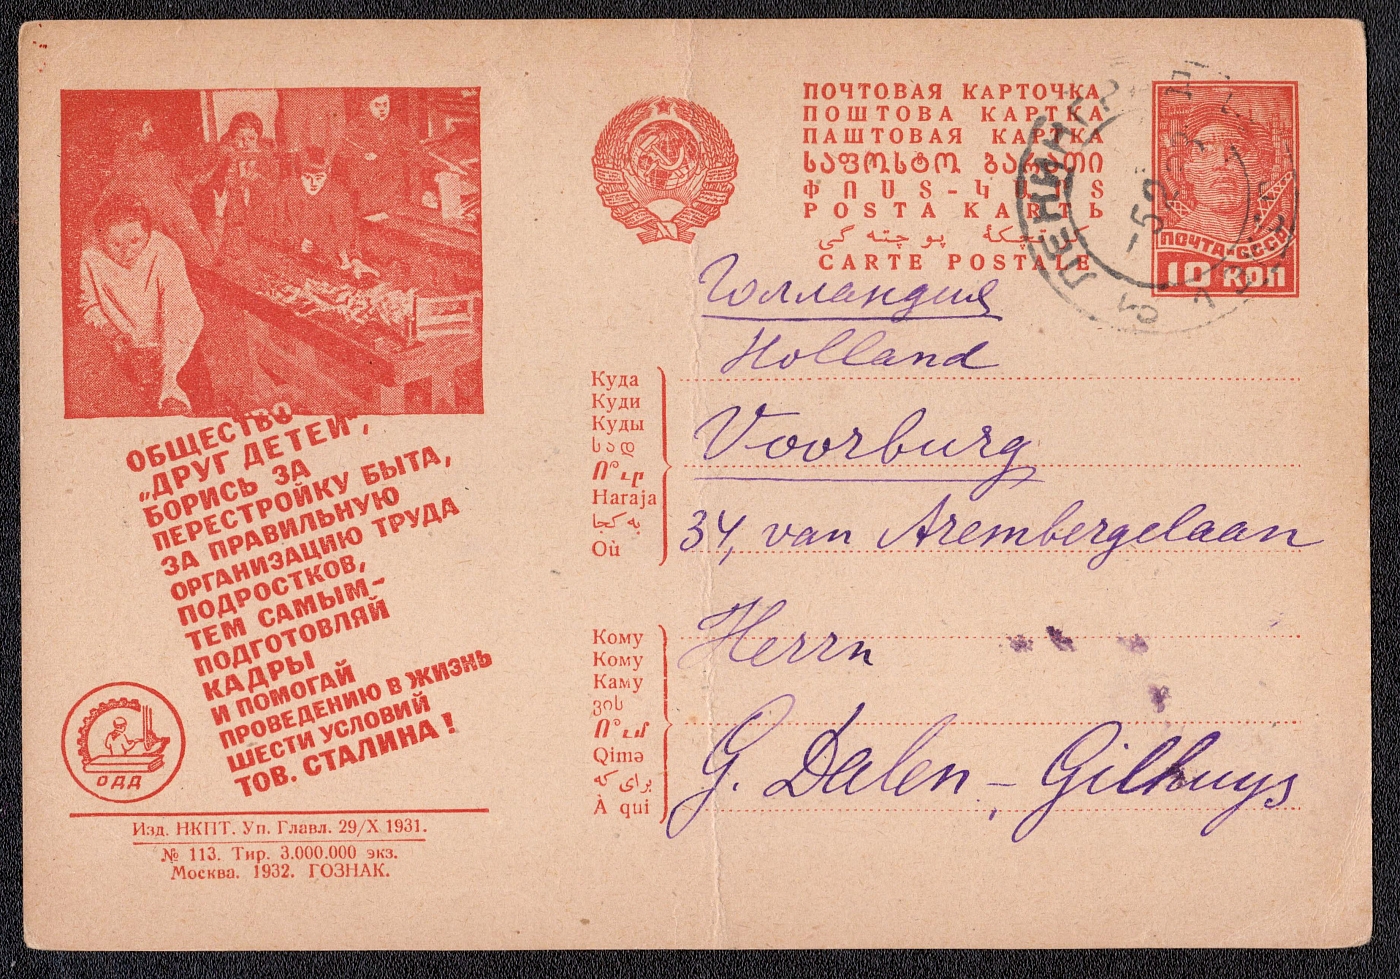 "ОБЩЕСТВО
"ДРУГ ДЕТЕЙ",
БОРИСЬ ЗА
ПЕРЕСТРОЙКУ БЫТА,
ЗА ПРАВИЛЬНУЮ
ОРГАНИЗАЦИЮ ТРУДА
ПОДРОСТКОВ,
ТЕМ САМЫМ-
ПОДГОТОВЛЯЙ
КАДРЫ
И ПОМОГАЙ
ПРОВЕДЕНИЮ В ЖИЗНЬ
ШЕСТИ УСЛОВИЙ
ТОВ. СТАЛИНА!
ОДД
Изд. НКПТ. Уп. Главл. 29/X 1931.
№ 113. Тир. 3.000.000 экз.
Москва. 1932. ГОЗНАК.
ПОЧТОВАЯ КАРТОЧКА
ПОШТОВА КАРТКА
ПАШТОВАЯ КАРТКА
ᲡᲐᲤᲝᲡᲢᲝ ᲑᲐᲠᲐᲗᲘ
ՓՈՍՏ-
POSTA KARTЬ
پوچته گی
CARTE POSTALE
ПОЧТА-СССР
10 КОП
ЛЕНИНГРАД
Голландия
Holland
Куда
Куди
Куды
სად
Ո՞ւր
Haraja
به کجا
Où
Voorburg
34, van Arembergelaan
Кому
Кому
Каму
ვის
Ո՞ւմ
Qimə
برای که
À qui
Herrn
G. Dalen - Gilhuys